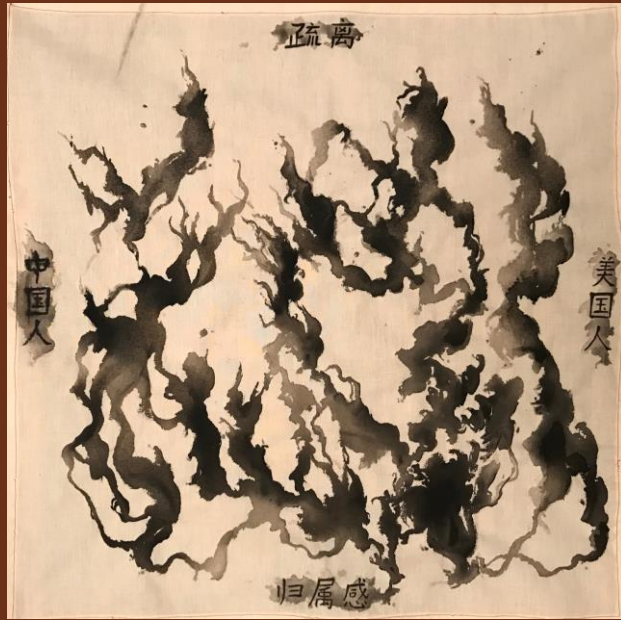 疏离
中国人
美国人
归属感